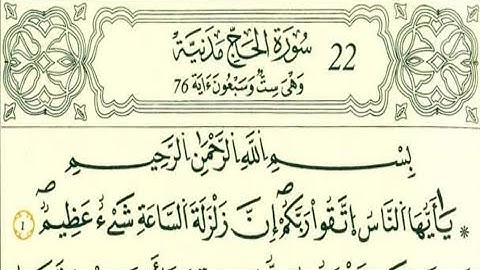 سُورَةُ الحَجِّ مَدَنِيَّة 22
وَهْيَ سِتٌّ وَسَبْعُونَ ءَايَة 76
بِسْمِ اِ۬للَّهِ اِ۬لرَّحْمَٰنِ اِ۬لرَّحِيمِ
يَٰأَيُّهَا اَ۬لنَّاسُ اُ۪تَّقُواْ رَبَّكُمُۥٓ إِنَّ زَلْزَلَةَ اَ۬لسَّاعَةِ شَےْءٌ عَظِيمٌ 1